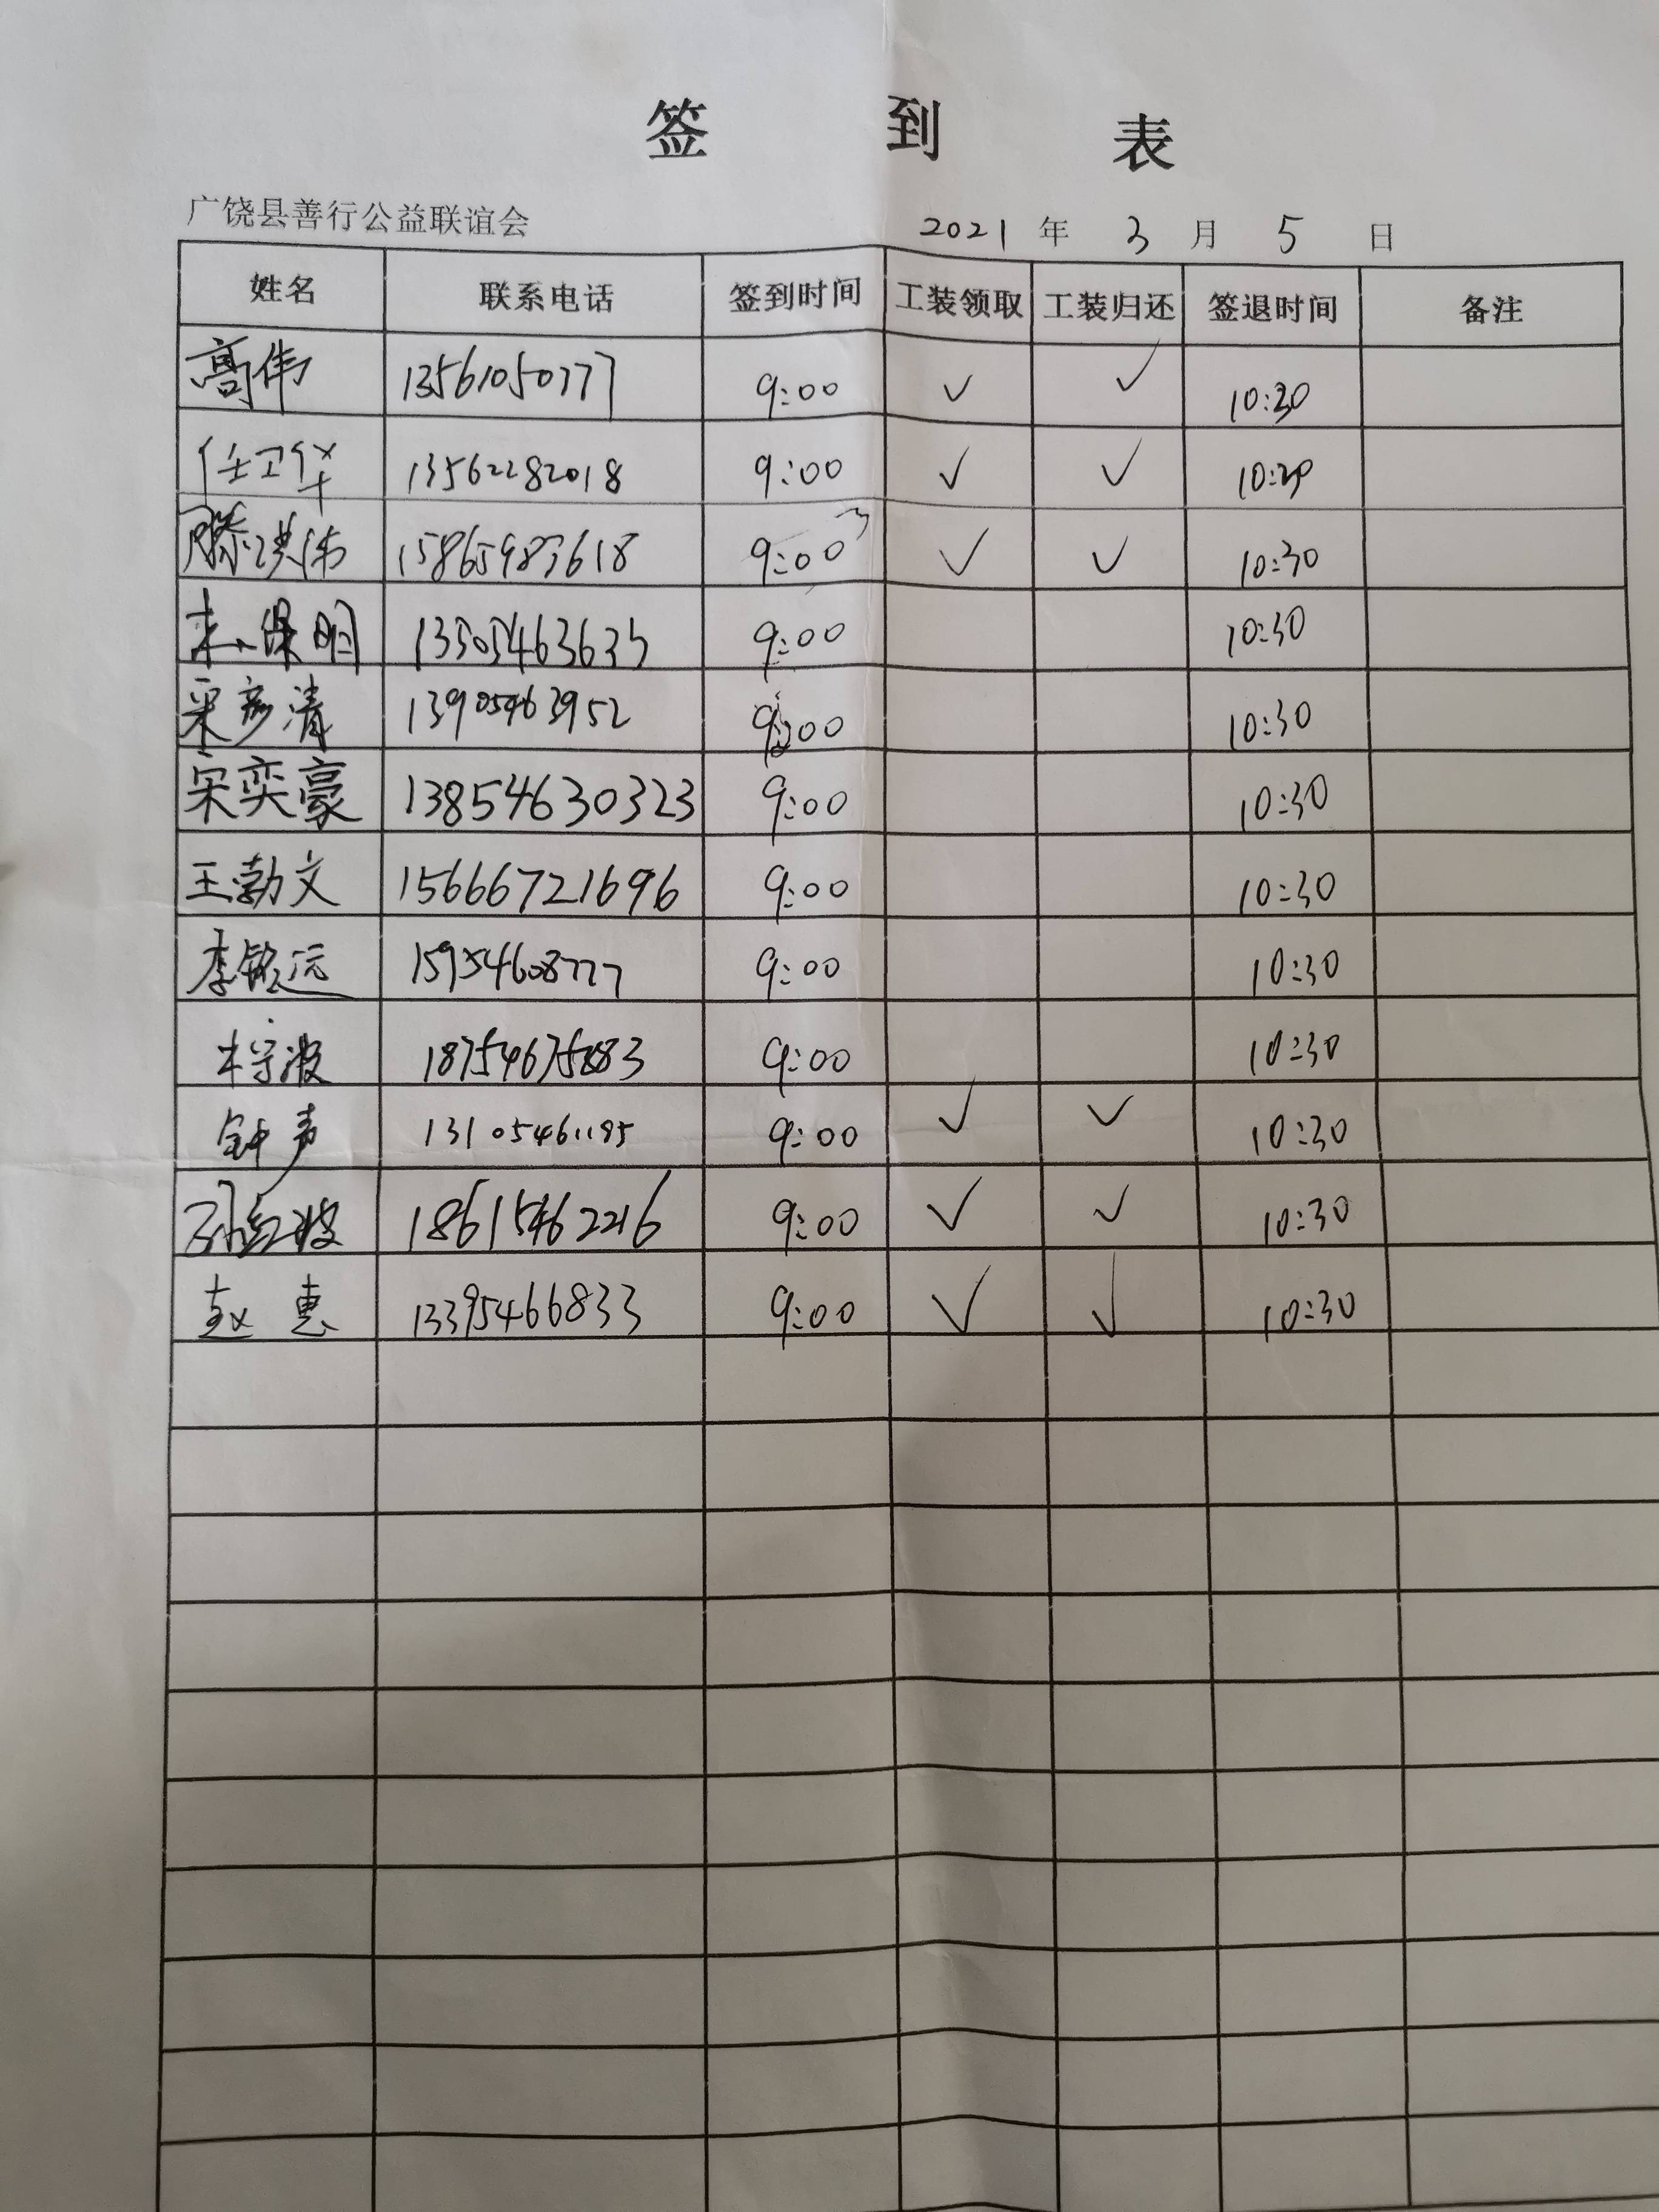 签 到 表
广饶县善行公益联谊会 2021 年 3 月 5 日
姓名 联系电话 签到时间 工装领取 工装归还 签退时间 备注
高伟 13561050777 9:00 ✓ ✓ 10:30
任卫华 13562282018 9:00 ✓ ✓ 10:30
滕洪伟 15865983618 9:00 ✓ ✓ 10:30
保明 13505463633 9:00 10:30
彦清 13905463952 9:00 10:30
宋奕豪 13854630323 9:00 10:30
王勃文 15666721696 9:00 10:30
李铭远 15954608777 9:00 10:30
波 9:00 10:30
钟声 13105461195 9:00 ✓ ✓ 10:30
孙红波 18615462216 9:00 ✓ ✓ 10:30
赵惠 13395466833 9:00 ✓ ✓ 10:30